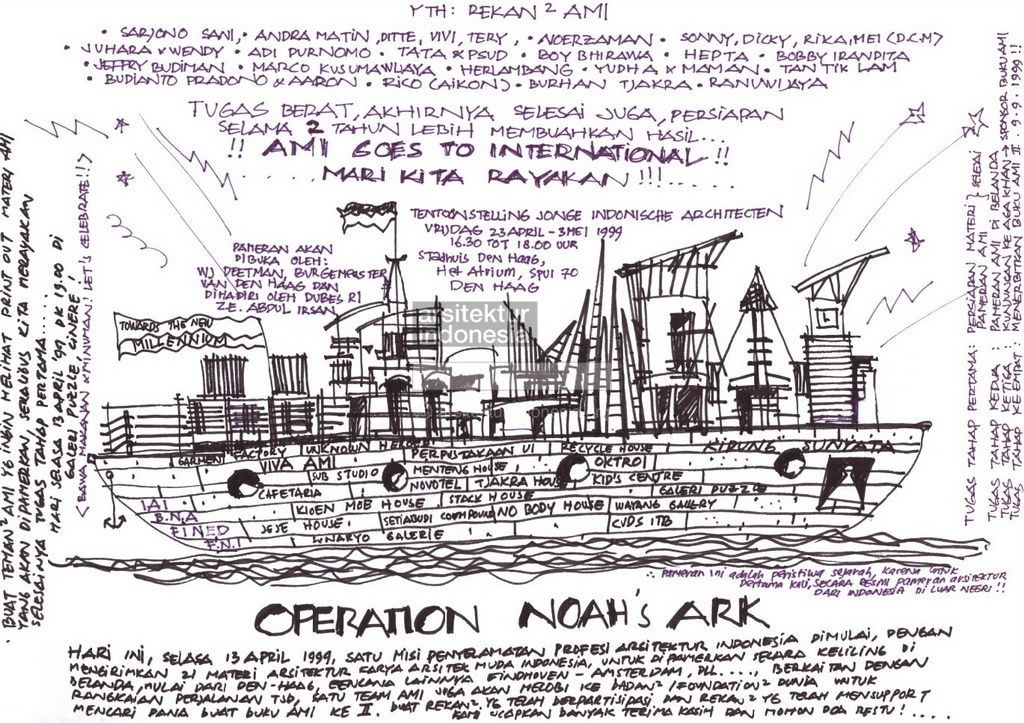 YTH: REKAN² AMI
• SARJONO SANI, • ANDRA MATIN, DITTE, VIVI, TERY, • NOERZAMAN • SONNY, DICKY, RIKA, MEI (D.C.M)
• JUHARA & WENDY • ADI PURNOMO • TATA & PSUD • BOY BHIRAWA • HEPTA • BOBBY IRANDITA
• JEFFRY BUDIMAN • MARCO KUSUMAWIJAYA • HERLAMBANG • YUDHA & MAMAN • TAN TIK LAM
• BUDIANTO PRADONO & AARON • RICO (AIKON) • BURHAN TJAKRA • RANUWIJAYA
TUGAS BERAT, AKHIRNYA SELESAI JUGA, PERSIAPAN
SELAMA 2 TAHUN LEBIH MEMBUAHKAN HASIL...
!! AMI GOES TO INTERNATIONAL!!
MARI KITA RAYAKAN!!!.....
TENTOONSTELLING JONGE INDONISCHE ARCHITECTEN
VRIJDAG 23 APRIL - 3 MEI 1999
16.30 TOT 18.00 UUR
Stadhuis Den Haag,
Het Atrium, Spui 70
DEN HAAG
PAMERAN AKAN
DIBUKA OLEH:
WJ DEETMAN, BURGEMEISTER
VAN DEN HAAG DAN
DIHADIRI OLEH DUBES RI
ZE. ABDUL IRSAN.
TOWARDS THE NEW
MILLENNIUM
arsitektur
indonesia
GARMENT FACTORY UNKNOWN HELPER PERPUSTAKAAN UI RECYCLE HOUSE KIDUNG SUNYATA
VIVA AMI SUB STUDIO MENTENG HOUSE OKTROI
CAFETARIA NOVOTEL TJAKRA HOUSE KID'S CENTRE
IAI KIOEN MOB HOUSE STACK HOUSE GALERI PUZZLE
B.N.A SETIABUDI COMPOUND NO BODY HOUSE WAYANG GALLERY
FINED JESE HOUSE CVDS ITB
P.N.I SUNARYO GALERIE
∴ Pameran ini adalah peristiwa sejarah, karena untuk
pertama kali, SECARA RESMI pameran arsitektur
DARI INDONESIA DI LUAR NEGRI!!
OPERATION NOAH'S ARK
HARI INI, SELASA 13 APRIL 1999, SATU MISI PENYELAMATAN PROFESI ARSITEKTUR INDONESIA DIMULAI, DENGAN
MENGIRIMKAN 21 MATERI ARSITEKTUR KARYA ARSITEK MUDA INDONESIA, UNTUK DIPAMERKAN SECARA KELILING DI
BELANDA, MULAI DARI DEN-HAAG, RENCANA LAINNYA EINDHOVEN - AMSTERDAM, DLL...., BERKAITAN DENGAN
RANGKAIAN PERJALANAN TSB, SATU TEAM AMI JUGA AKAN MELOBI KE BADAN² / FOUNDATION² DUNIA UNTUK
MENCARI DANA BUAT BUKU AMI KE II. BUAT REKAN², YG TELAH BERPARTISIPASI DAN REKAN² YG TELAH MENSUPPORT
KAMI UCAPKAN BANYAK TERIMA KASIH DAN MOHON DOA RESTU!...
• BUAT TEMAN² AMI YG INGIN MELIHAT PRINT OUT MATERI AMI
YANG AKAN DIPAMERKAN, SEKALIGUS KITA MERAYAKAN
SELESAINYA TUGAS TAHAP PERTAMA....
HARI SELASA 13 APRIL '99 PK 19.00 DI
GALERI PUZZLE CINERE!
< BAWA MAKANAN & MINUMAN! LET'S CELEBRATE!! >
TUGAS TAHAP PERTAMA: PERSIAPAN MATERI } SELESAI
PAMERAN AMI
TUGAS TAHAP KEDUA: PAMERAN AMI DI BELANDA
TUGAS TAHAP KETIGA: KUNJUNGAN KE AGA KHAN → SPONSOR BUKU AMI
TUGAS TAHAP KEEMPAT: MENERBITKAN BUKU AMI II. 9.9.1999!!